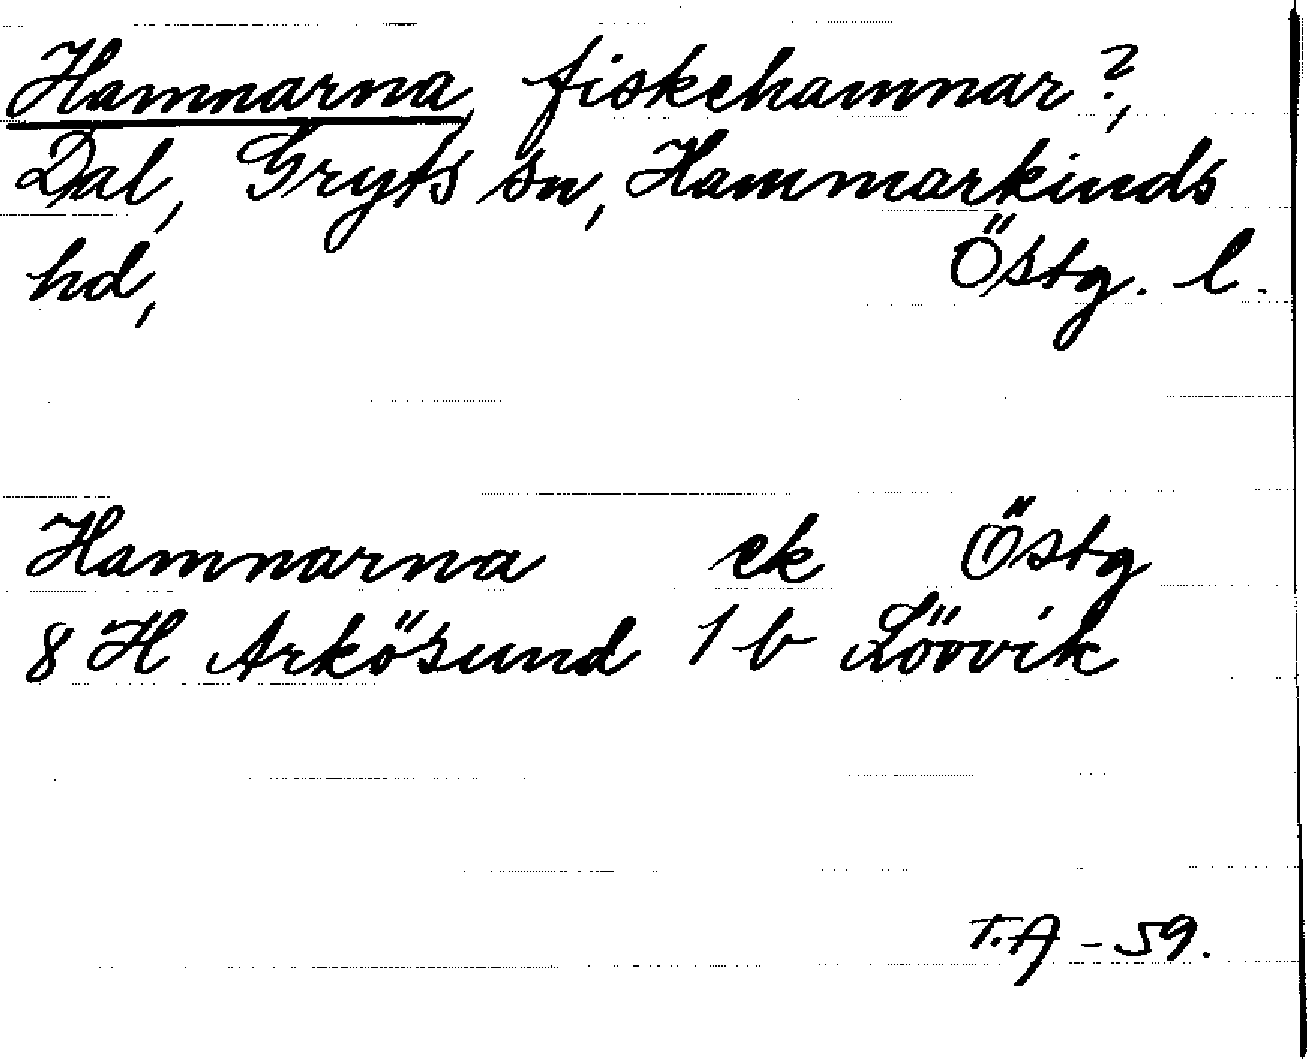 Hamnarna, fiskehamnar?,
Dal, Gryts sn, Hammarkinds
hd, Östg. l.
Hamnarna ek Östg
8 H Arkösund 1 b Löövik
T.A - 59.